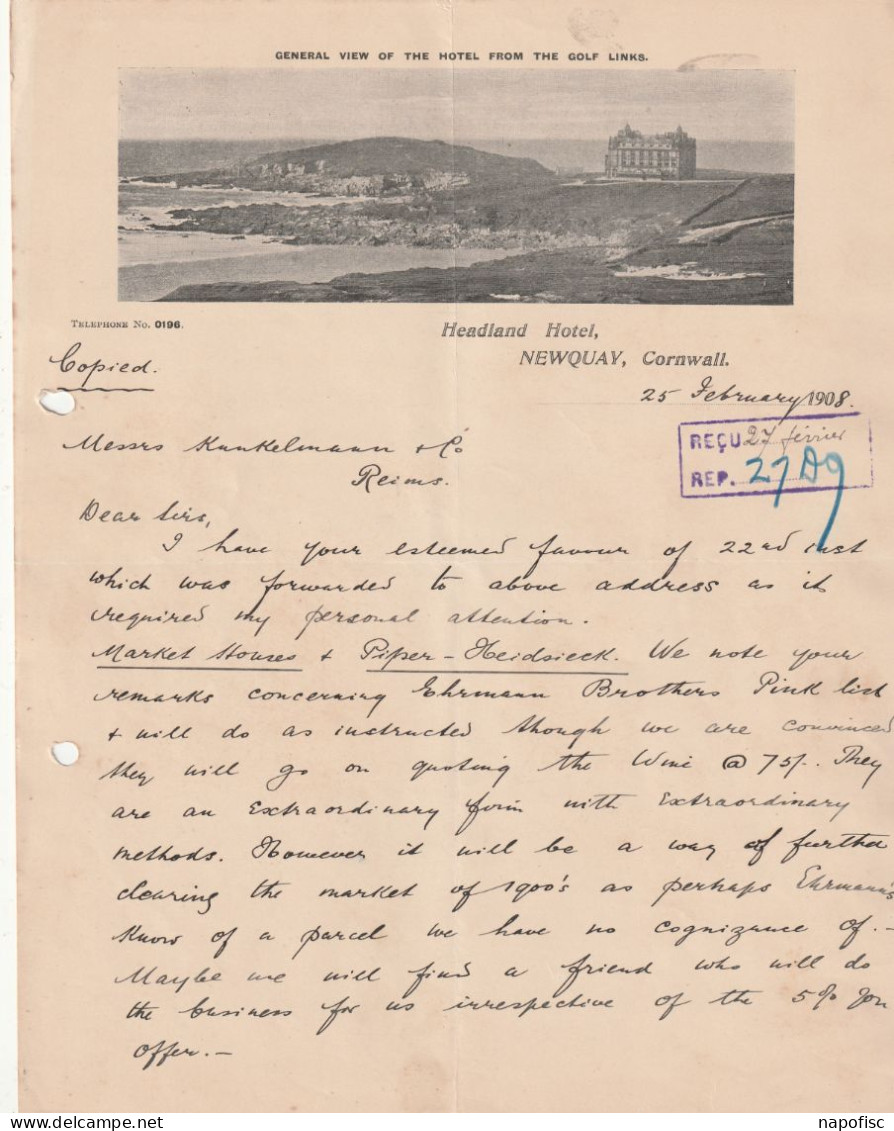 GENERAL VIEW OF THE HOTEL FROM THE GOLF LINKS.
TELEPHONE No. 0196.
Headland Hotel,
NEWQUAY, Cornwall.
Copied.
25 February 1908.
Messrs Kunkelmann & Co
Reims.
REÇU 27 février
REP. 27 D9
Dear Sirs,
I have your esteemed favour of 22nd inst
which was forwarded to above address as it
required my personal attention.
Market Houses & Piper-Heidsieck. We note your
remarks concerning Ehrmann Brothers Pink list
& will do as instructed though we are convinced
they will go on quoting the Wine @ 75/-. They
are an extraordinary firm with extraordinary
methods. However it will be a way of further
clearing the market of 1900's as perhaps Ehrmann's
know of a parcel we have no cognizance of.-
Maybe we will find a friend who will do
the business for us irrespective of the 5% you
offer.-
napofisc